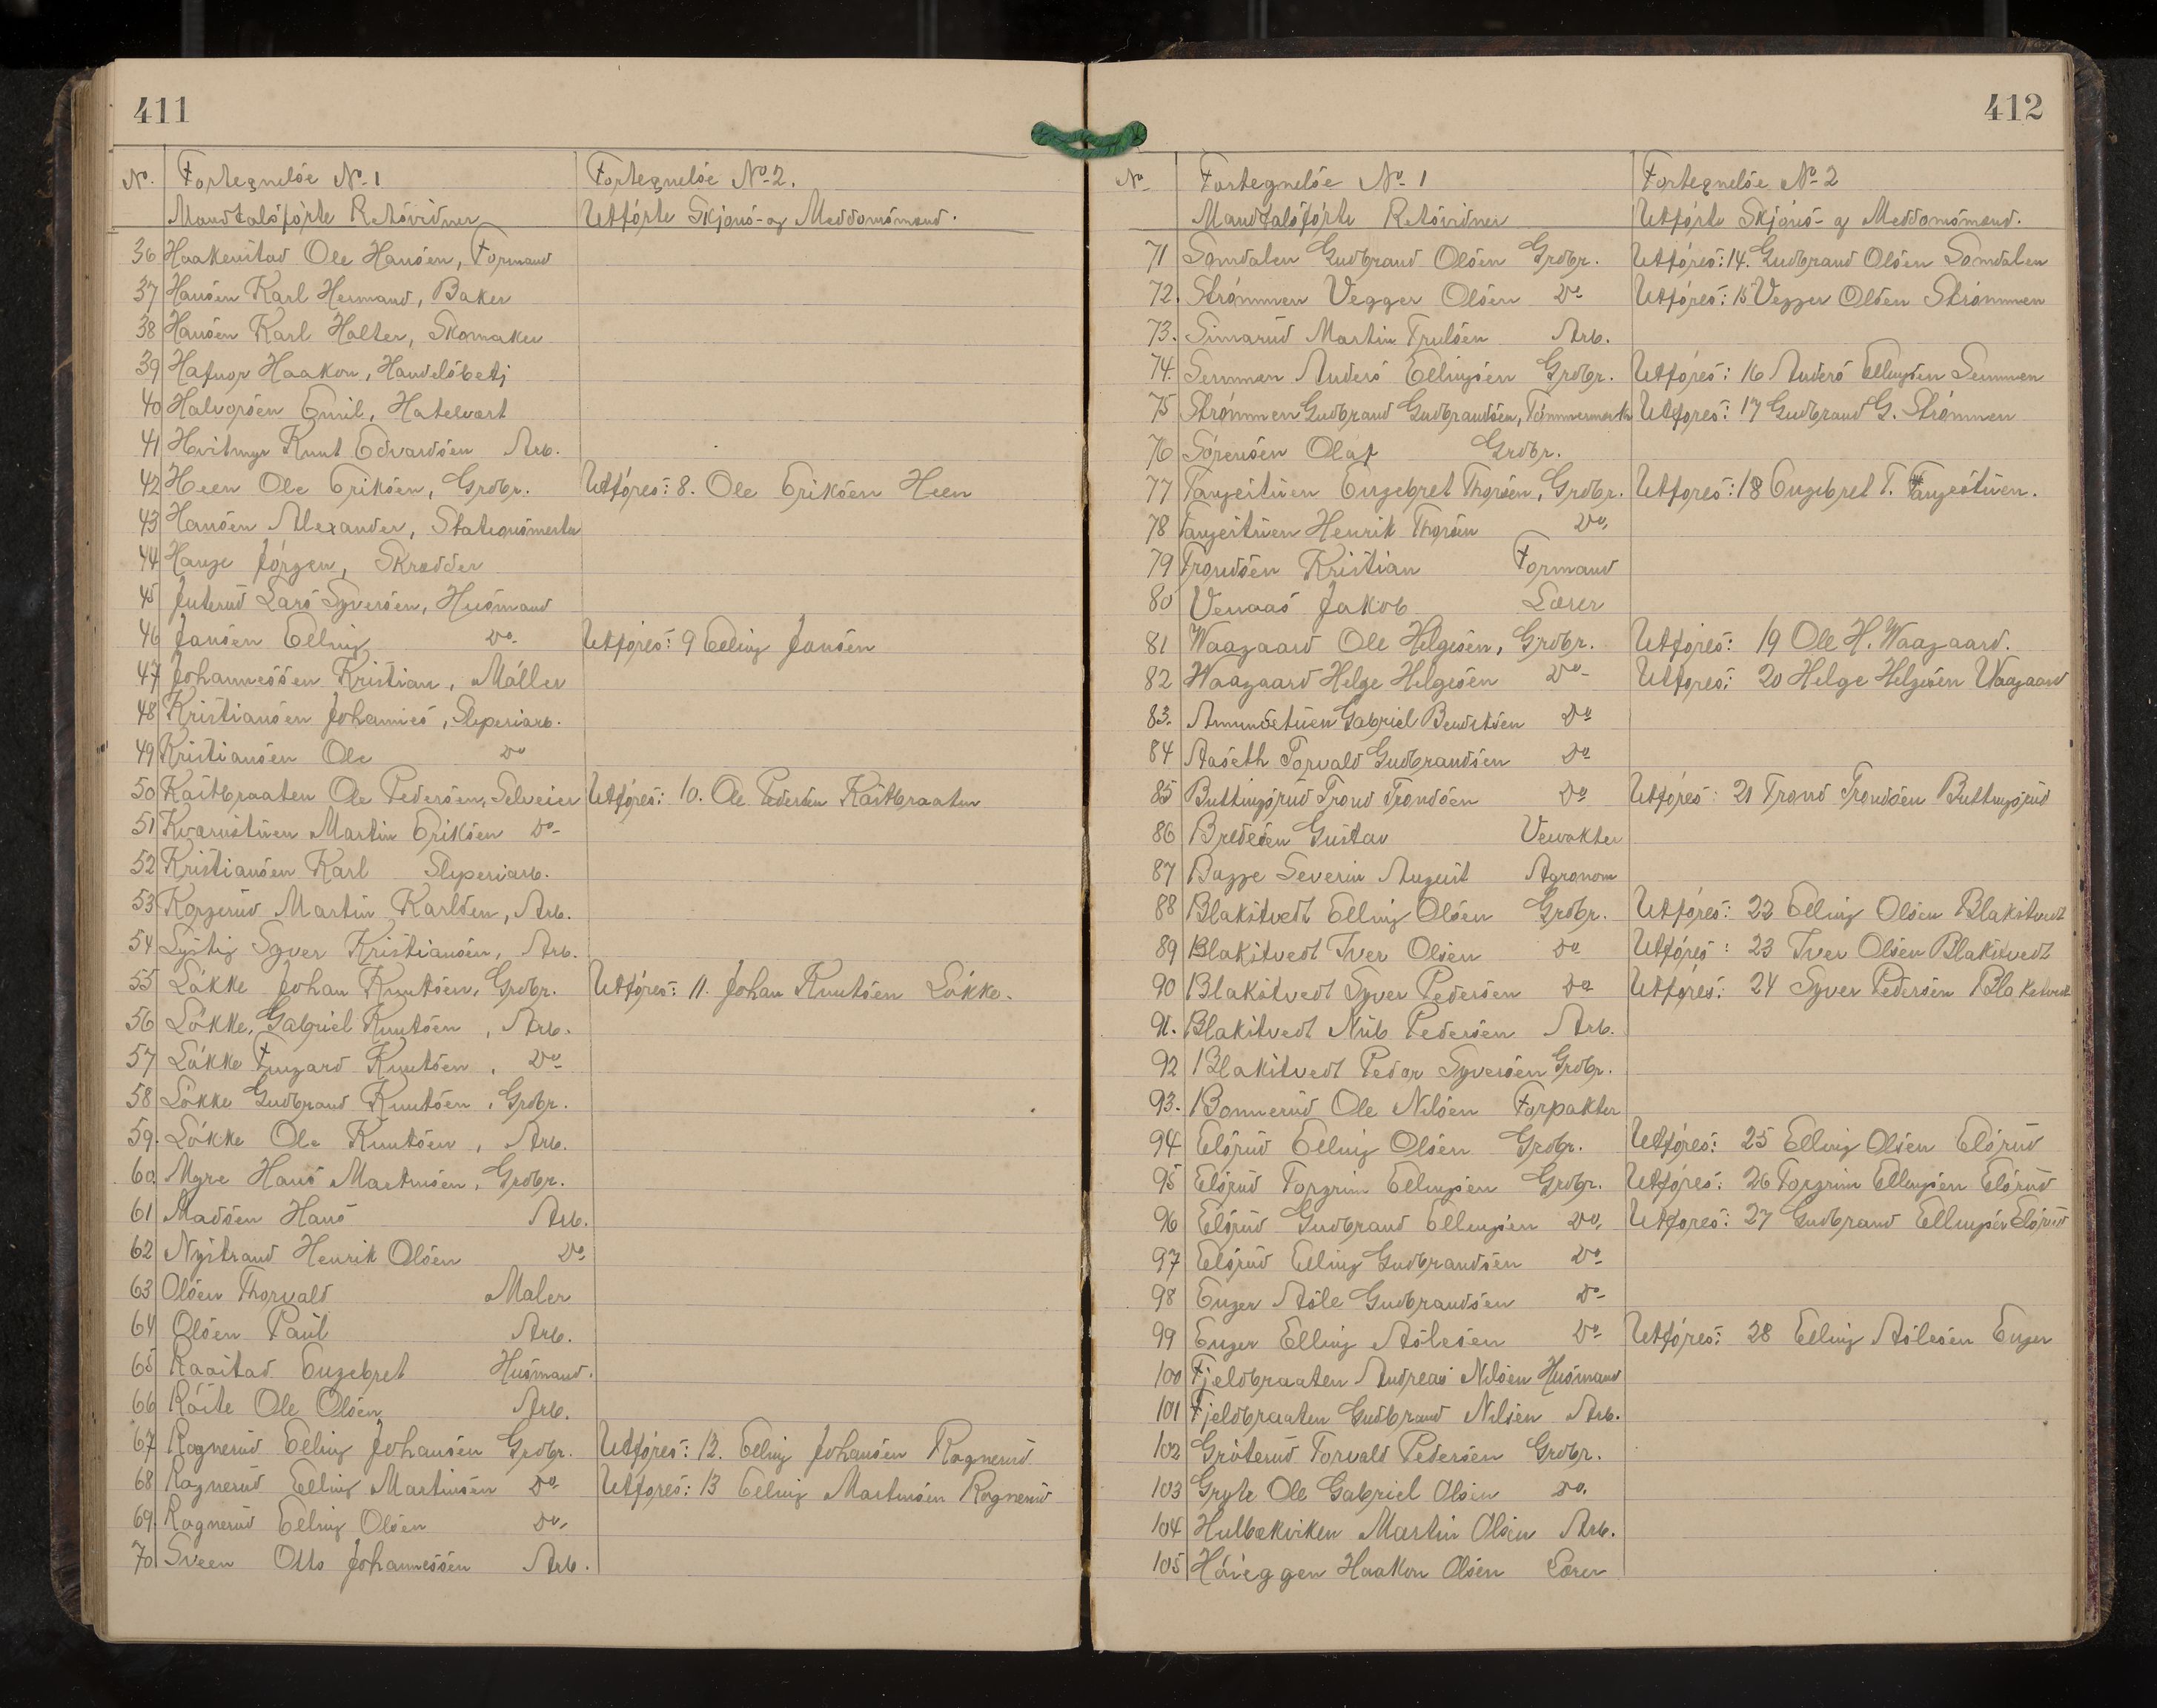 411
No. Fortegnelse No. 1 Fortegnelse No. 2.
Mandtalsførte Retsvidner Utførte Skjøns- og Meddomsmænd.
36 Haakenstad Ole Hansen, Formand
37 Hansen Karl Hermand, Baker
38 Hansen Karl Halter, Skomaker
39 Hafnor Haakon, Handelsbetj
40 Halvorsen Emil, Hotelvært
41 Hvitmyr Knut Edvardsen Arb.
42 Heen Ole Eriksen, Grdbr. Utføres: 8. Ole Eriksen Heen
43 Hansen Alexander, Stationsmester
44 Hauge Jørgen, Skrædder
45 Juterud Lars Syversen, Husmand
46 Jansen Elling Do. Utføres: 9 Elling Jansen
47 Johannessen Kristian, Møller
48 Kristiansen Johannes, Sliperiarb.
49 Kristiansen Ole Do
50 Kastbraaten Ole Pedersen, Selveier Utføres: 10. Ole Pedersen Kastbraaten
51 Kvernstuen Martin Eriksen Do.
52 Kristiansen Karl Sliperiarb.
53 Korgerud Martin Karlsen, Arb.
54 Lystig Syver Kristiansen, Arb.
55 Løkke Johan Knutsen, Grdbr. Utføres: 11. Johan Knutsen Løkke.
56 Løkke, Gabriel Knutsen, Arb.
57 Løkke Fingard Knutsen, Do
58 Løkke Gudbrand Knutsen, Grdbr.
59. Løkke Ole Knutsen, Arb.
60. Myre Hans Martinsen, Grdbr.
61 Madsen Hans Arb.
62 Nystrand Henrik Olsen Do.
63 Olsen Thorvald Maler
64 Olsen Paul Arb.
65 Raastad Engebret Husmand.
66 Røste Ole Olsen Arb.
67 Rognerud Elling Johansen Grdbr. Utføres: 12. Elling Johansen Rognerud
68 Rognerud Elling Martinsen Do. Utføres: 13 Elling Martinsen Rognerud
69. Rognerud Elling Olsen Do.
70 Sveen Otto Johannessen Arb.
412
No Fortegnelse No. 1 Fortegnelse No. 2
Mandtalsførte Retsvidner Utførte Skjøns- og Meddomsmænd.
71 Somdalen Gudbrand Olsen Grdbr. Utføres: 14. Gudbrand Olsen Somdalen
72. Strømmen Vegger Olsen Do Utføres: 15 Vegger Olsen Strømmen
73. Simarud Martin Trulsen Arb.
74. Semmen Anders Ellingsen Grdbr. Utføres: 16 Anders Ellingsen Semmen
75 Strømmen Gudbrand Gudbrandsen, Tømmermerker Utføres: 17 Gudbrand G. Strømmen
76 Sørensen Olaf Grdbr.
77 Tangestuen Engebret Thorsen, Grdbr. Utføres: 18 Engebret T. Tangestuen.
78 Tangestuen Henrik Thorsen Do.
79 Trondsen Kristian Formand
80 Venaas Jakob Lærer
81 Waagaard Ole Helgesen, Grdbr. Utføres: 19 Ole H. Waagaard.
82 Waagaard Helge Helgesen Do. Utføres: 20 Helge Helgesen Waagaard
83. Amundstuen Gabriel Berntsen Do
84 Aaseth Torvald Gudbrandsen Do
85 Buttingsrud Trond Trondsen Do Utføres: 21 Trond Trondsen Buttingsrud
86 Bredesen Gustav Veivokter
87 Bagge Severin August Agronom
88 Blakstvedt Elling Olsen Grdbr. Utføres: 22 Elling Olsen Blakstvedt
89 Blakstvedt Iver Olsen Do Utføres: 23 Iver Olsen Blakstvedt
90 Blakstvedt Syver Pedersen Do Utføres: 24 Syver Pedersen Blakstvedt
91. Blakstvedt Nils Pedersen Arb.
92 Blakstvedt Peder Syversen Grdbr.
93. Bonnerud Ole Nilsen Forpakter
94 Elsrud Elling Olsen Grdbr. Utføres: 25 Elling Olsen Elsrud
95 Elsrud Torgrim Ellingsen Grdbr. Utføres: 26 Torgrim Ellingsen Elsrud
96 Elsrud Gudbrand Ellingsen Do. Utføres: 27 Gudbrand Ellingsen Elsrud
97 Elsrud Elling Gudbrandsen Do
98 Enger Asle Gudbrandsen Do
99 Enger Elling Aslesen Do Utføres: 28 Elling Aslesen Enger
100 Fjeldbraaten Andreas Nilsen Husmand
101 Fjeldbraaten Gudbrand Nilsen Arb.
102 Grøterud Torvald Pedersen Grdbr.
103 Gryte Ole Gabriel Olsen Do.
104 Hulbækviken Martin Olsen Arb.
105 Høseggen Haakon Olsen Lærer